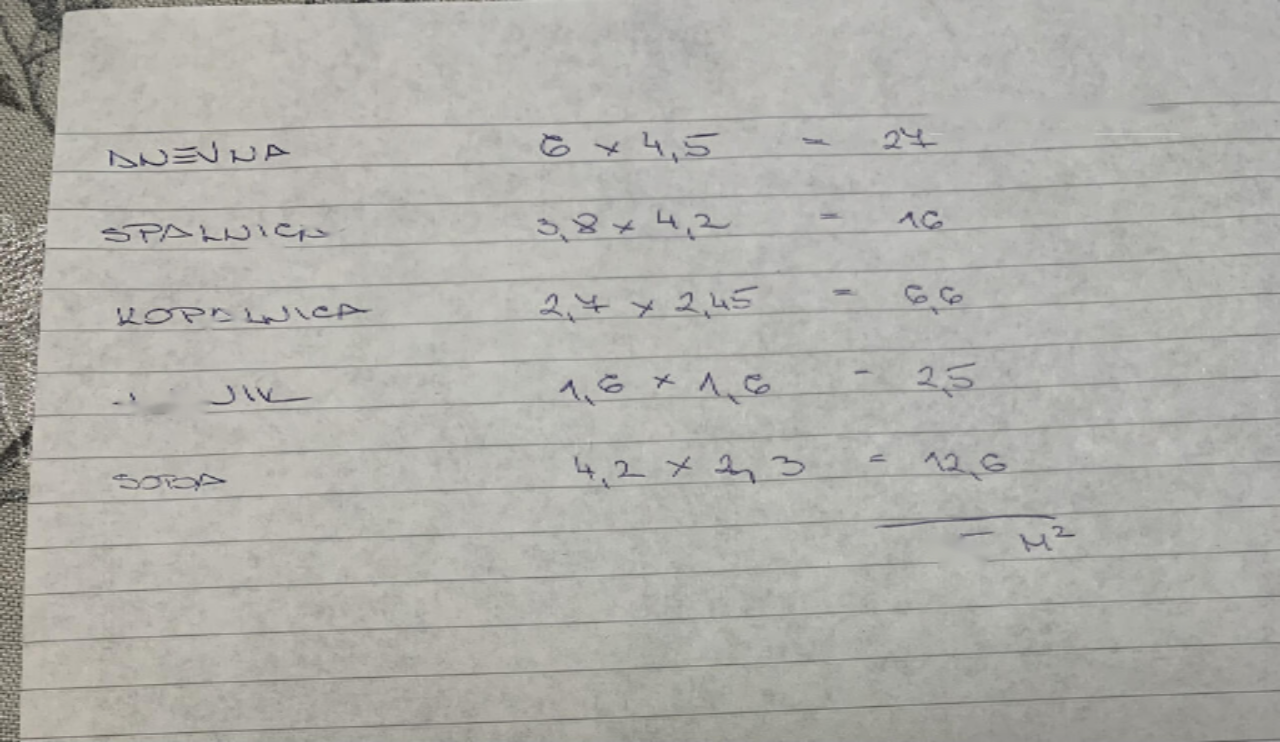 DNEVNA 6 x 4,5 = 27
SPALNICA 3,8 x 4,2 = 16
KOPALNICA 2,7 x 2,45 = 6,6
1,6 x 1,6 - 2,5
SOBA 4,2 x 3 = 12,6
M²